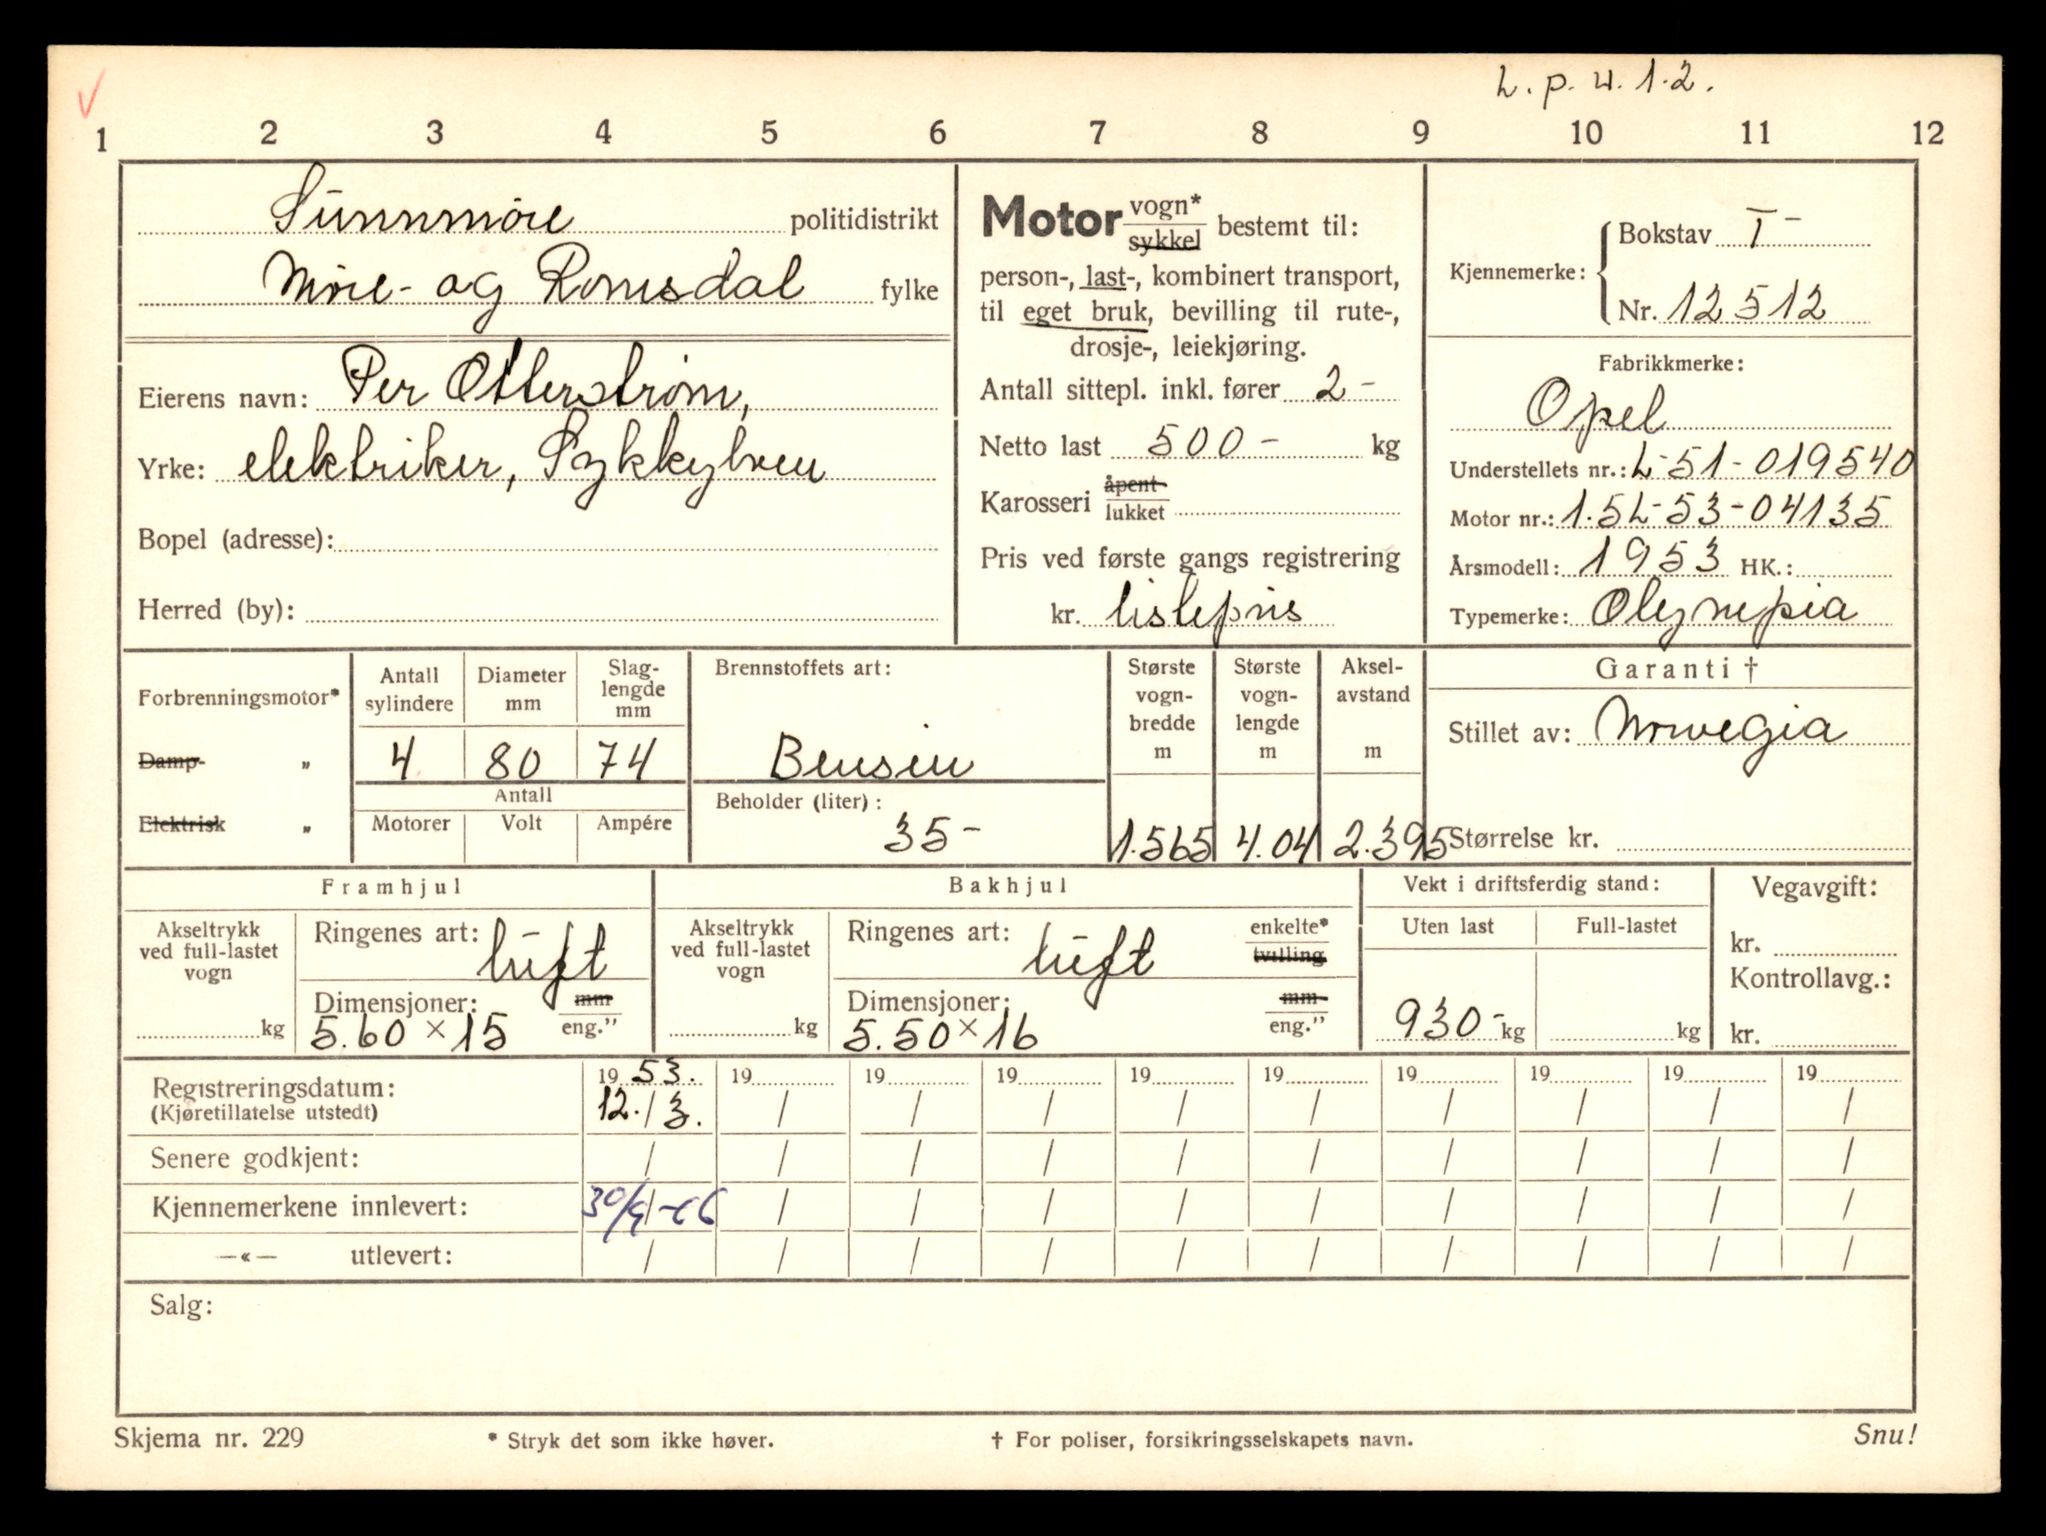 L. p. w. 1-2.
1 2 3 4 5 6 7 8 9 10 11 12
Sunnmøre politidistrikt
Møre- og Romsdal fylke
Eierens navn: Per Otterstrøm,
Yrke: elektriker, Sykkylven
Bopel (adresse):
Herred (by):
Motor vogn* sykkel bestemt til:
person-, last-, kombinert transport,
til eget bruk, bevilling til rute-,
drosje-, leiekjøring.
Antall sittepl. inkl. fører 2-
Netto last 500- kg
Karosseri åpent lukket
Pris ved første gangs registrering
kr. listepris
Kjennemerke: Bokstav T-
Nr. 12512
Fabrikkmerke:
Opel
Understellets nr.: L-51-019540
Motor nr.: 1.5L-53-04135
Årsmodell: 1953 HK.:
Typemerke: Olympia
Forbrenningsmotor*
Damp- „
Elektrisk „
Antall sylindere Diameter mm Slag-lengde mm
4 80 74
Antall
Motorer Volt Ampére
Brennstoffets art:
Bensin
Beholder (liter):
35-
Største vogn-bredde m
1.565
Største vogn-lengde m
4.04
Aksel-avstand m
2.395
Garanti †
Stillet av: Norwegia
Størrelse kr.
Framhjul
Akseltrykk ved full-lastet vogn
kg
Ringenes art: luft
Dimensjoner: mm
5.60 × 15 eng."
Bakhjul
Akseltrykk ved full-lastet vogn
kg
Ringenes art: luft enkelte* tvilling
Dimensjoner: mm
5.50 × 16 eng."
Vekt i driftsferdig stand:
Uten last Full-lastet
930- kg kg
Vegavgift:
kr.
Kontrollavg.:
kr.
Registreringsdatum: 19 53. 19 19 19 19 19 19 19 19 19
(Kjøretillatelse utstedt) 12. / 3. / / / / / / / / /
Senere godkjent: / / / / / / / / / /
Kjennemerkene innlevert: 30/9-66 / / / / / / / / /
—«— utlevert: / / / / / / / / / /
Salg:
Skjema nr. 229 * Stryk det som ikke høver. † For poliser, forsikringsselskapets navn. Snu!